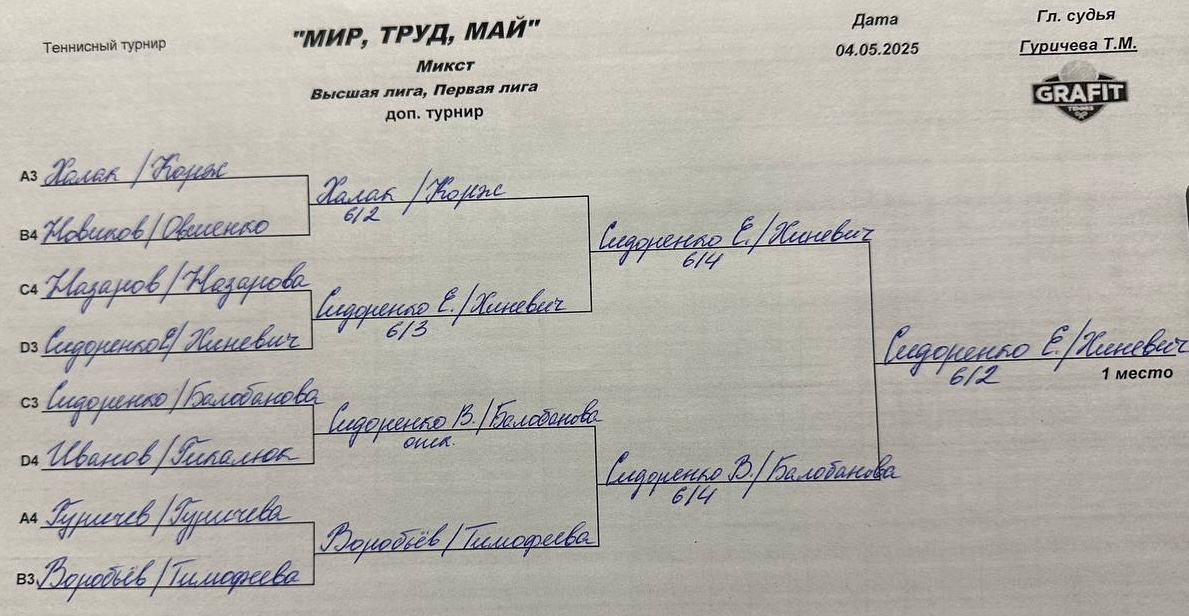 Теннисный турнир
"МИР, ТРУД, МАЙ"
Микст
Высшая лига, Первая лига
доп. турнир
Дата
04.05.2025
Гл. судья
Гуричева Т.М.
GRAFIT
TENNIS
A3 Халак / Корж
B4 Новиков / Овшенко
C4 Назаров / Назарова
D3 Сидоренко Е / Хиневич
C3 Сидоренко / Балобанова
D4 Иванов / Гикалюк
A4 Гуричев / Гуричева
B3 Воробьёв / Тимофеева
Халак / Корж
6/2
Сидоренко Е. / Хиневич
6/3
Сидоренко В. / Балобанова
отк.
Воробьёв / Тимофеева
Сидоренко Е. / Хиневич
6/4
Сидоренко В. / Балобанова
6/4
Сидоренко Е. / Хиневич
6/2
1 место